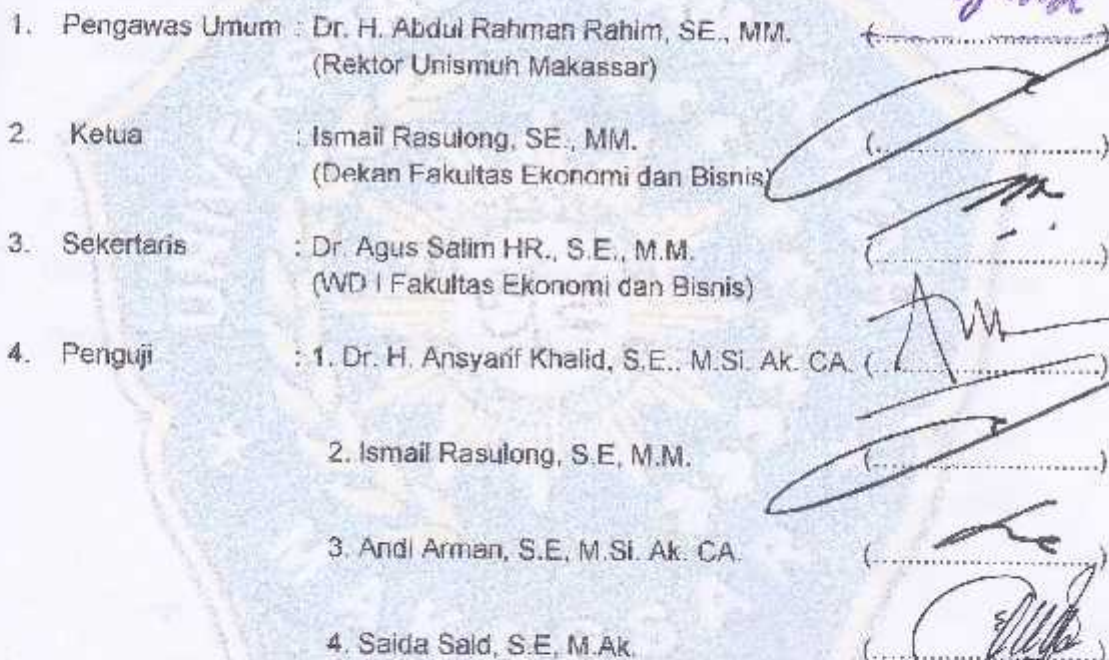 1. Pengawas Umum : Dr. H. Abdul Rahman Rahim, SE., MM. (..................)
(Rektor Unismuh Makassar)
2. Ketua : Ismail Rasulong, SE., MM. (..................)
(Dekan Fakultas Ekonomi dan Bisnis)
3. Sekertaris : Dr. Agus Salim HR., S.E., M.M. (..................)
(WD I Fakultas Ekonomi dan Bisnis)
4. Penguji : 1. Dr. H. Ansyarif Khalid, S.E., M.Si. Ak. CA. (..................)
2. Ismail Rasulong, S.E, M.M. (..................)
3. Andi Arman, S.E, M.Si. Ak. CA. (..................)
4. Saida Said, S.E, M.Ak. (..................)